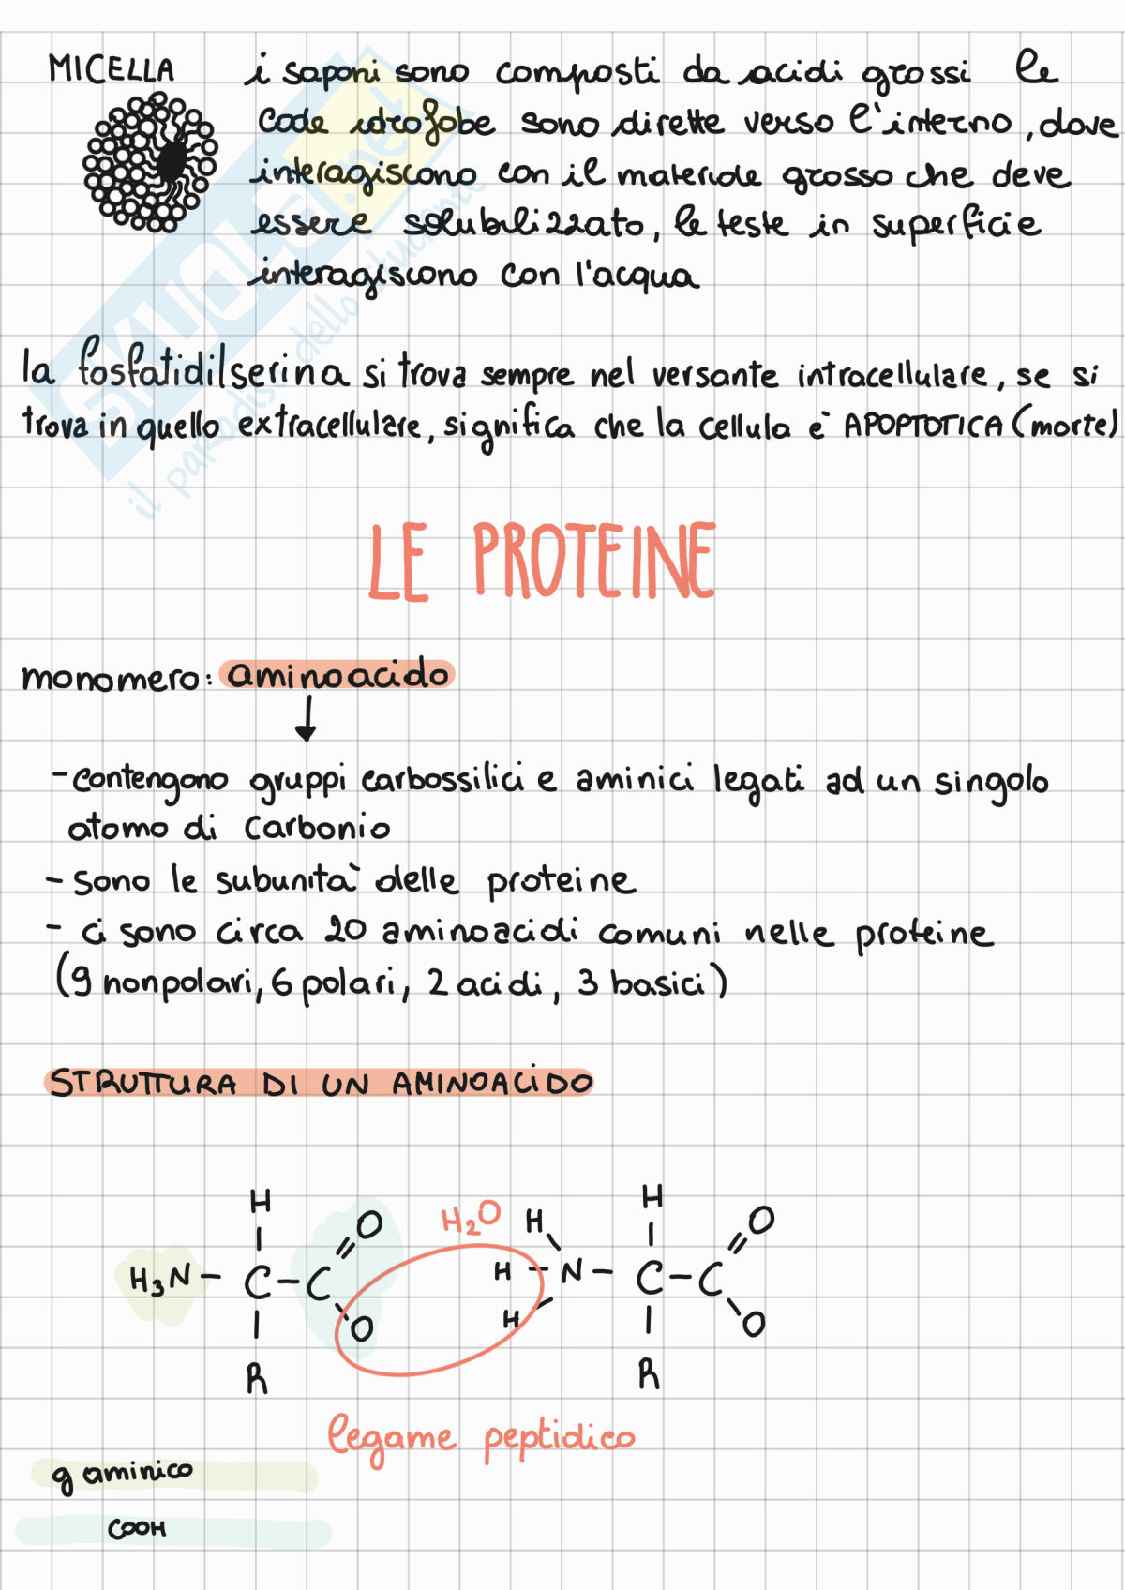 MICELLA
i saponi sono composti da acidi grassi le
code idrofobe sono dirette verso l'interno, dove
interagiscono con il materiale grasso che deve
essere solubilizzato, le teste in superficie
interagiscono con l'acqua
SKUOLA.net
il paradiso dello studente
la fosfatidilserina si trova sempre nel versante intracellulare, se si
trova in quello extracellulare, significa che la cellula è APOPTOTICA (morte)
LE PROTEINE
monomero: aminoacido
- contengono gruppi carbossilici e aminici legati ad un singolo
atomo di carbonio
- sono le subunità delle proteine
- ci sono circa 20 aminoacidi comuni nelle proteine
(9 nonpolari, 6 polari, 2 acidi, 3 basici)
STRUTTURA DI UN AMINOACIDO
H H₂O H H
O O
H₃N - C - C H - N - C - C
O H O
R R
legame peptidico
g aminico
COOH